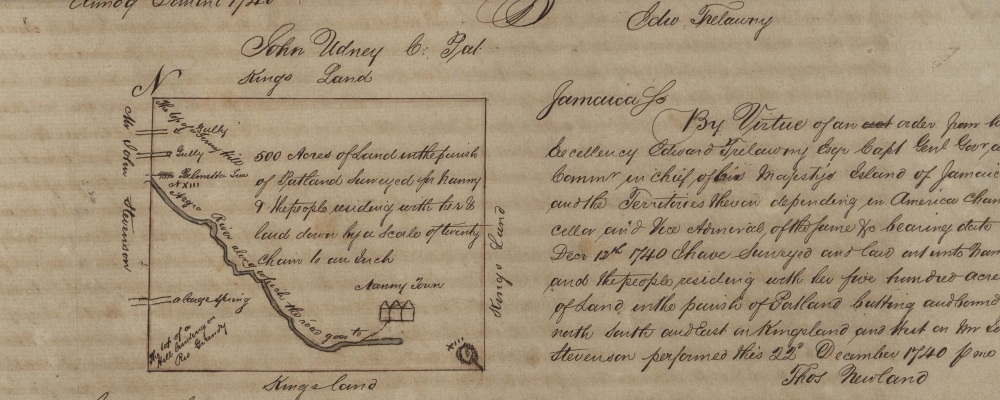 Domini 1740
Edw Trelawny
John Udney C: Pat.
Kings Land
N
Mr John Stevenson
The top of a
Gully
Gully
Palmetto Tree
N XIII
Negro River along which the road goes to
500 Acres of Land in the parish
of Patland Surveyed for Nanny
& the people residing with her &
laid down by a Scale of twenty
Chain to an Inch
Nanny Town
a large Spring
The top of a
Hill
XIII
Kings Land
Kings land
Jamaica Ss
By Virtue of an order from
Excellency Edward Trelawny Esqr Capt Genl Govr
Commr in chief of his Majestys Island of Jamaic
and the Territories thereon depending in America Chan
cellor, and Vice Admiral, of the same &c bearing date
Decr 12th 1740 I have Surveyed and laid out unto Nan
and the people residing with her five hundred acre
of Land in the parish of Patland butting and bound
north South and East on Kingsland and West on Mr
Stevenson performed this 22d December 1740 p me
Thos Newland